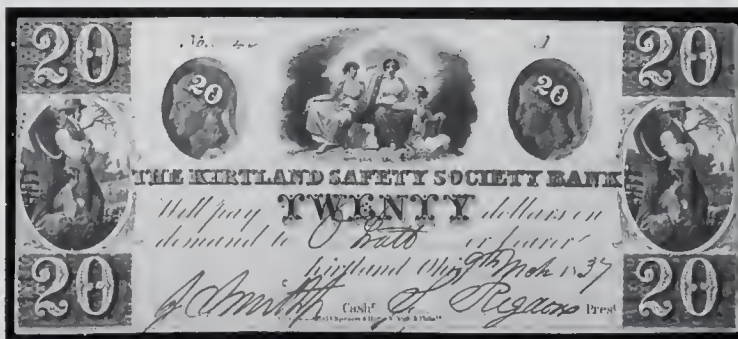 20 No. A 20
20 20
THE KIRTLAND SAFETY SOCIETY BANK
Will pay TWENTY dollars on
demand to O Pratt or bearer
Kirtland Ohio 9th Mch 1837
20 J Smith Cashr S Rigdon Prest 20